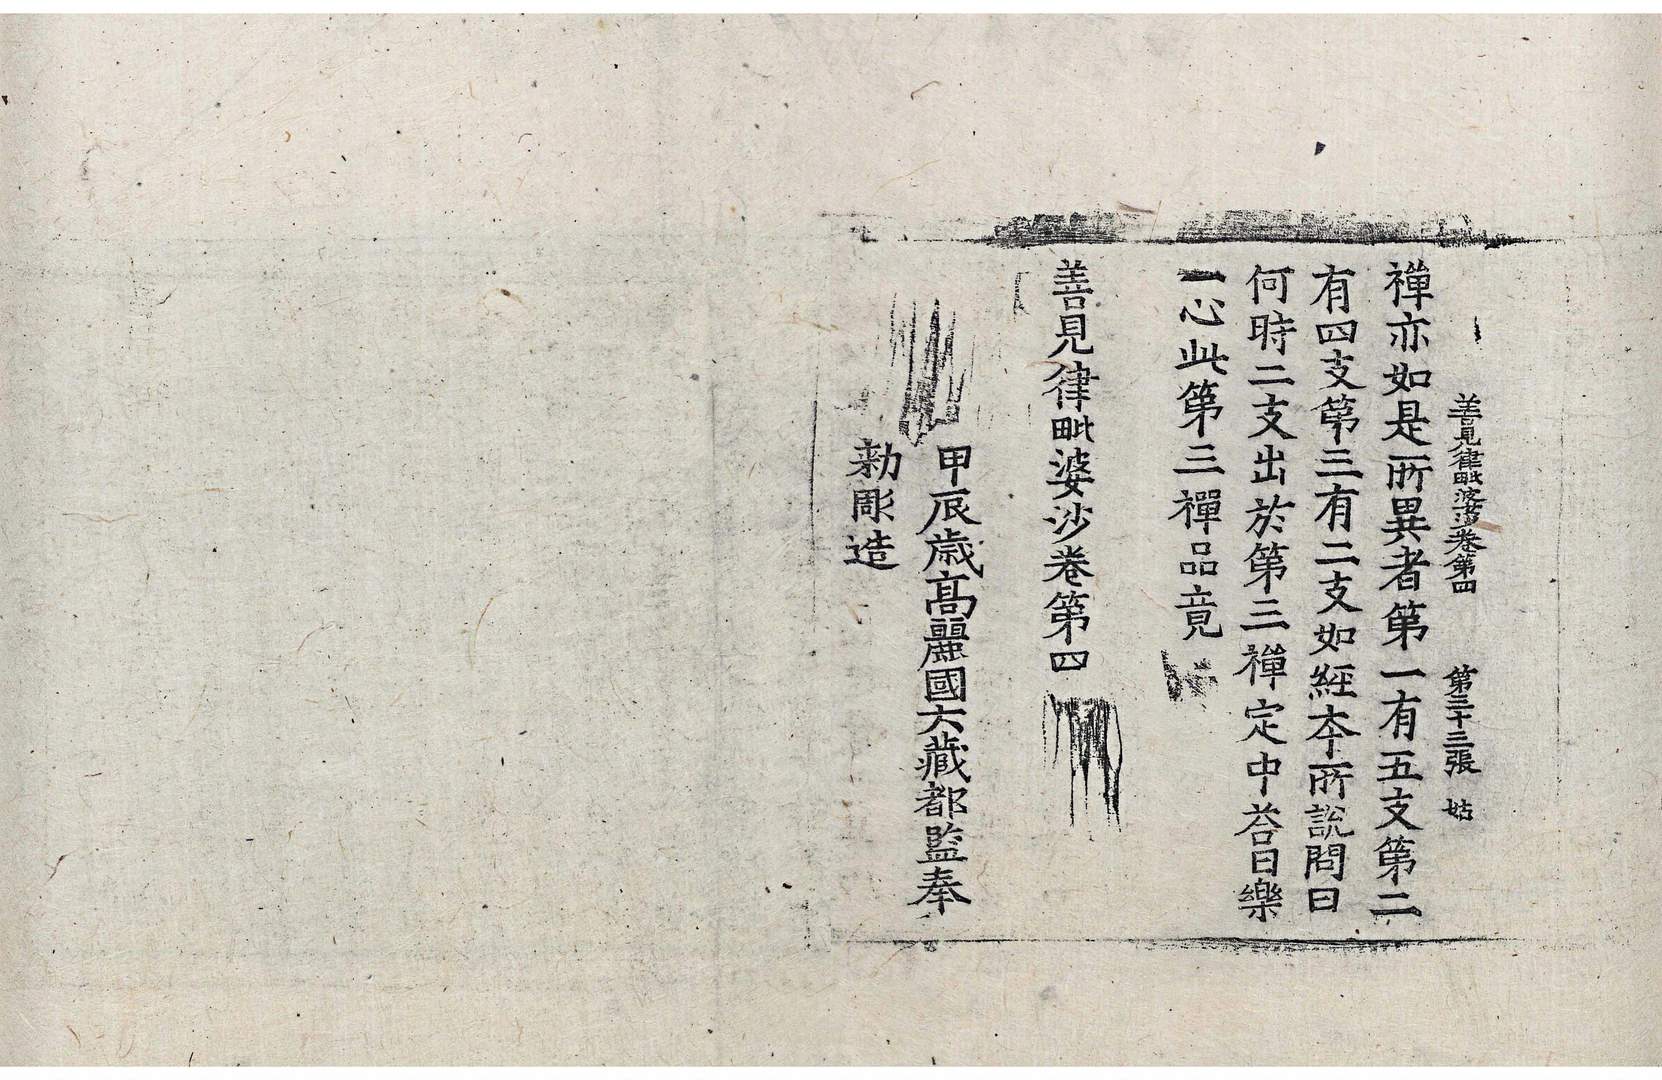 善見律毗婆沙卷第四 第三十三張 姑
禪亦如是所異者第一有五支第二
有四支第三有二支如經本所說問曰
何時二支出於第三禪定中荅曰樂
一心此第三禪品竟
善見律毗婆沙卷第四
甲辰歳高麗國大藏都監奉
勑彫造